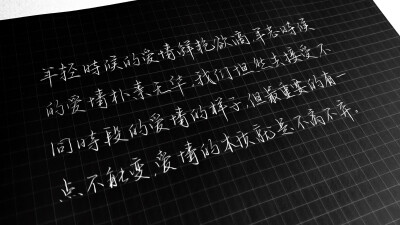 年轻時候的爱情鲜艳欲滴,年老時候
的爱情朴素无华,我们坦然去接受不
同時段的爱情的样子,但最重要的有一
点不能变,爱情的本质就是不离不弃.